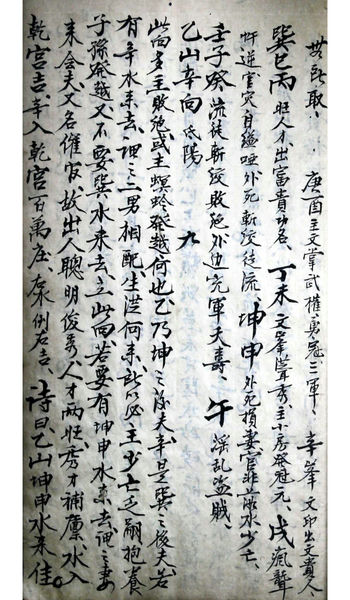 庚酉主文掌武權男冠三軍、辛峯文印出文貴人
巽巳丙旺人才出富貴功名、丁未文峯聳秀主小房發冠元、戌瘋聾
忤逆官災自縊、外死斬絞徒流、坤申外死損妻官非並主水少亡、
壬子癸流徒斬絞敗絕外邊充軍夭壽、午淫乱盜賊、
乙山辛向
此向多主敗絕或主螟蛉發越何也乙乃坤之後夫辛是巽之後夫若
有辛水來去二男相配生從何來、所以必主少亡乏嗣抱養
子孫發越又不要巽水來去立此向若要有坤申水來去之妻
來会夫又名催官故出人聰明俊秀人才兩旺秀才補廩水入
乾宮吉辛入乾宮百萬庄、例右吉、詩曰乙山坤申水來佳